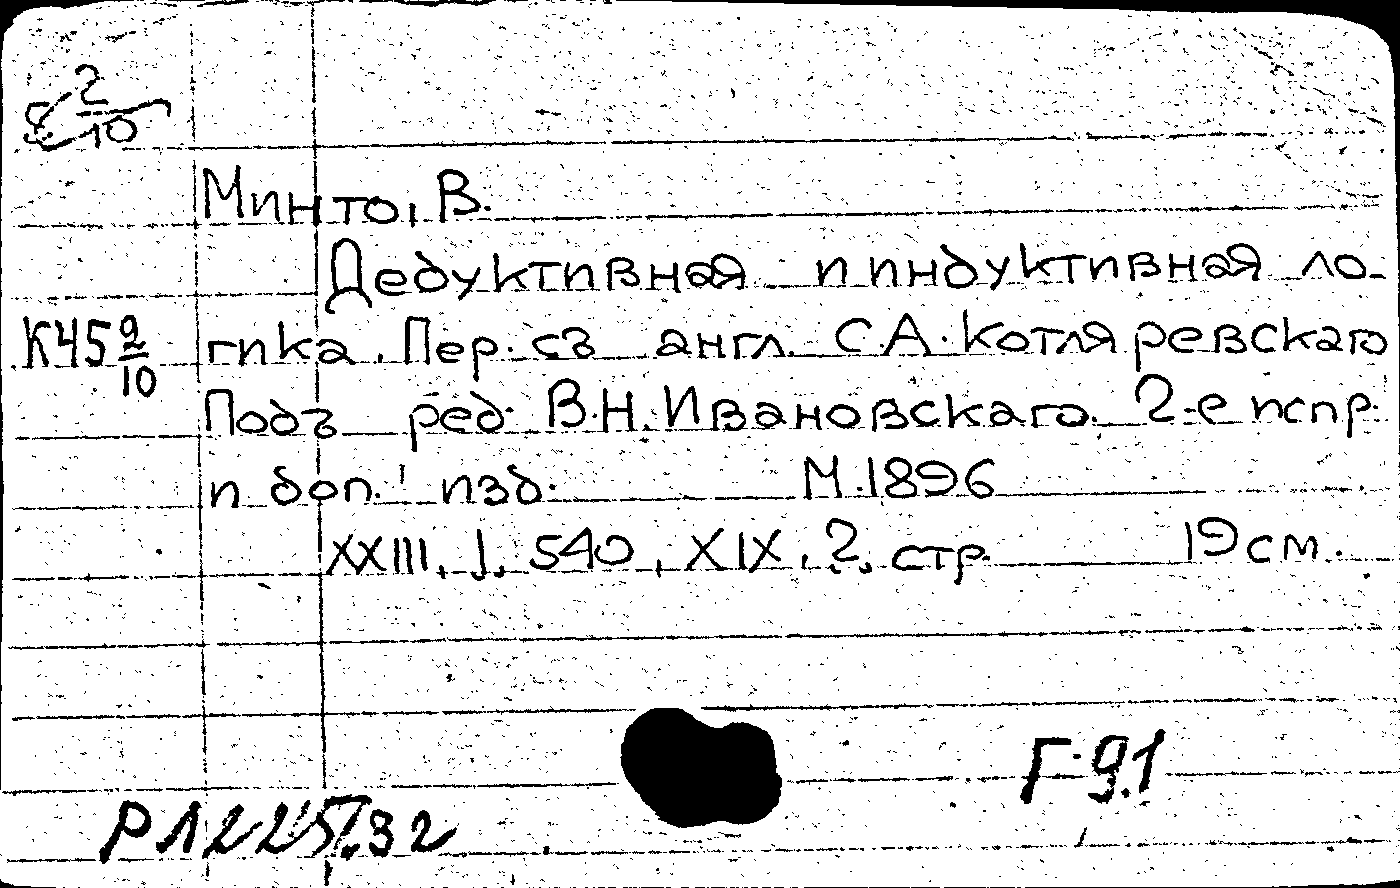 2/10
Минто, В.
Дедуктивная и индуктивная ло-
К45 9/10
гика. Пер. съ англ. С.А. Котляревскаго
Подъ ред. В.Н. Ивановскаго. 2-е испр.
и доп. изд. М. 1896
XXIII, 1, 540, XIX, 2, стр. 19 см.
Г. 9.1